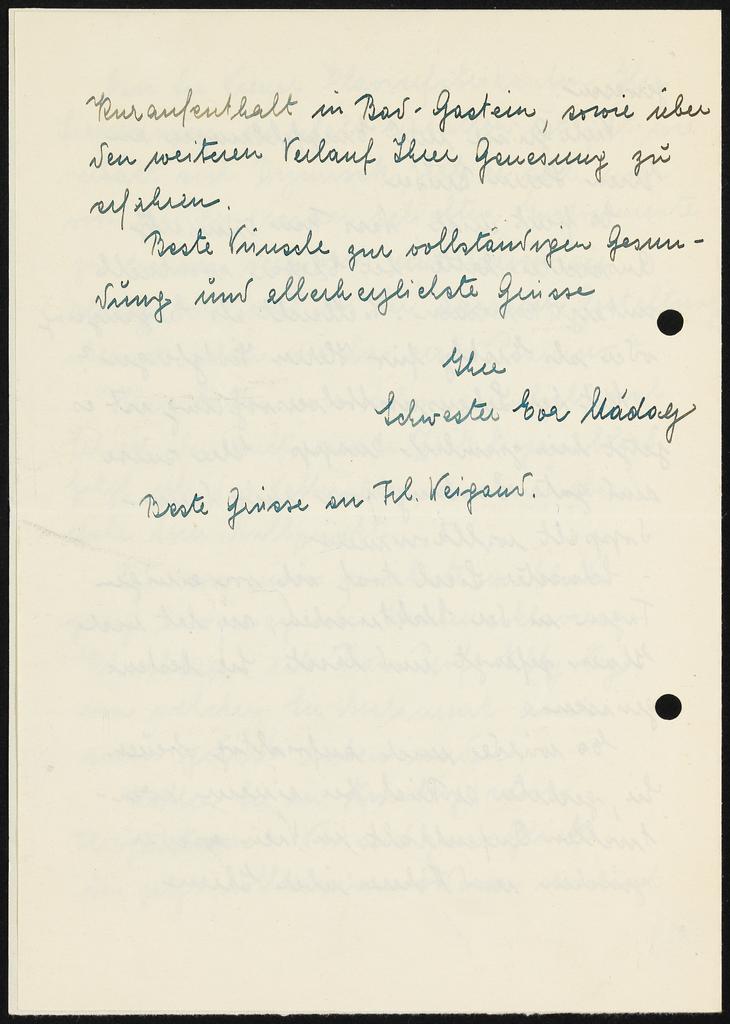 Kuraufenthalt in Bad-Gastein, sowie über
den weiteren Verlauf Ihrer Genesung zu
erfahren.
Beste Wünsche zur vollständigen Gesun-
dung und allerherzlichste Grüsse
Ihre
Schwester Eva Mádag
Beste Grüsse an Frl. Weigand.